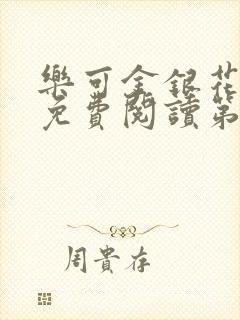 樂可金銀花
免費閱讀第
周貴存